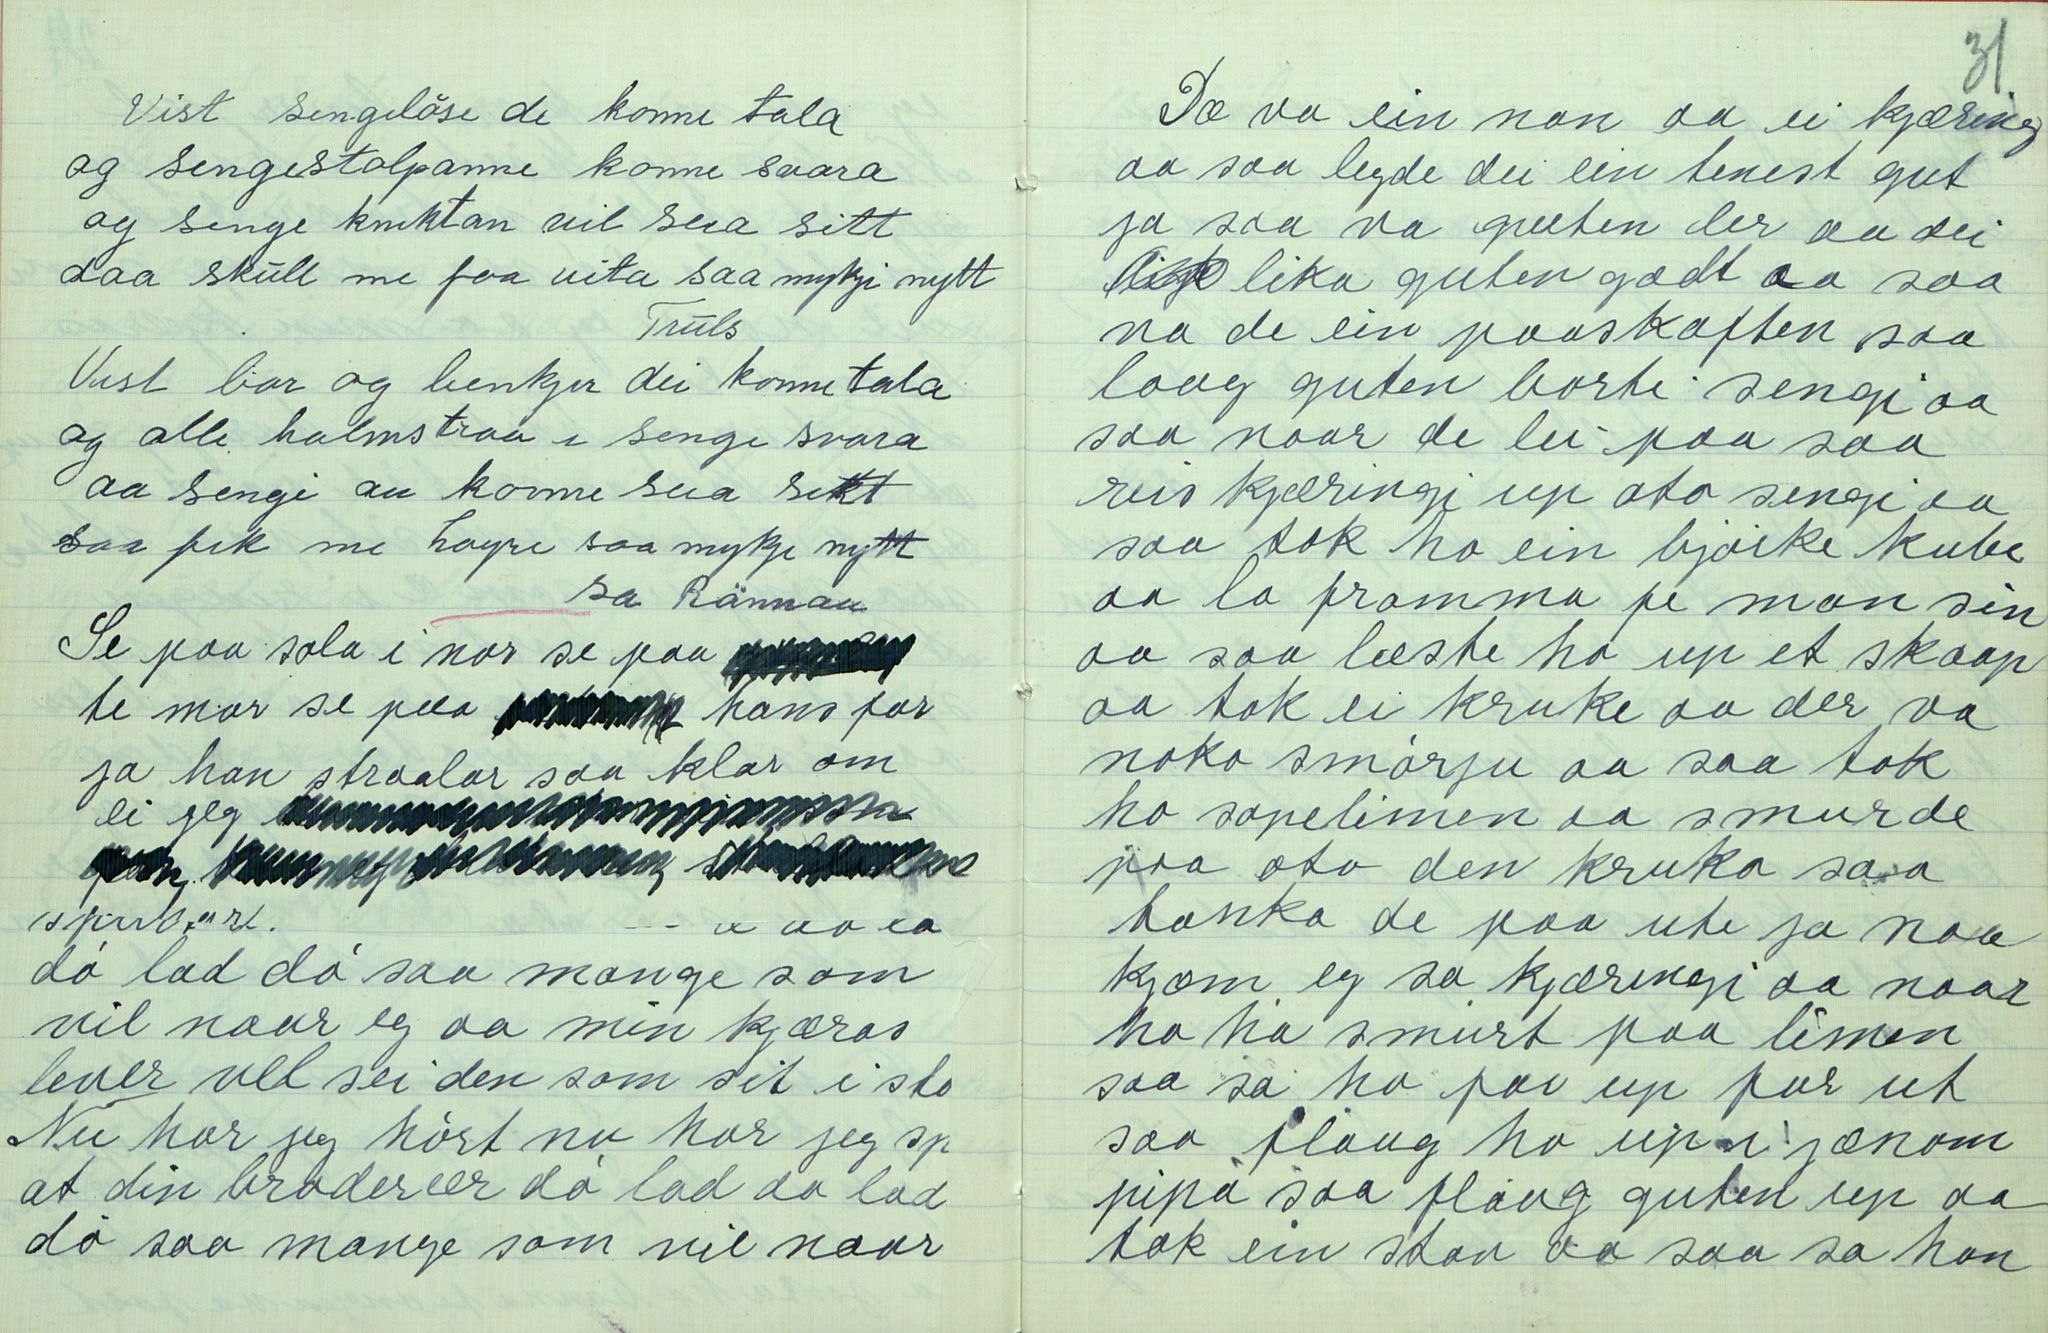 Vist sengelöse de konne tala
og sengestolpanne konne svara
og senge knıktan vil seia sitt
daa skúll me faa vita saa mykje nytt
Trúls
Vist bor og benkjer dei konne tala
og alle halmstraa i senge svara
aa sengi au konne seia sitt
saa fek me høyre saa mykje nytt
sa Rännau
Se paa sola i nor se paa
te mor se paa hans far
ja han straalar saa klar om
ei jeg
dó lad dó saa mange som
vil naar eg aa min kjæras
lever vel sei den som sit i sto
Nu har jeg hórt nu har jeg sp
at din broder er dó lad aa lad
dó saa mange som vil naar
31
Dæ va ein man aa ei kjæring
aa saa legde dei ein tenest gut
ja saa va guten der aa dei
lika guten godt aa saa
va de ein paaskaften saa
laag guten borti sengi aa
saa naar de lei paa saa
reis kjæringi up ato sengi aa
saa tok ho ein bjórke kube
aa la framma fe man sin
aa saa læste ho up et skaap
aa tok ei kruke aa der va
noko smórju aa saa tok
ho sopelimen aa smurde
paa ato den kruka saa
banka de paa ute ja naa
kjæm eg sa kjæringi aa naar
ho ha smurt paa limen
saa sa ho far up far ut
saa flaug ho up i jænom
pipa saa flaug guten up aa
tok ein stav aa saa sa han